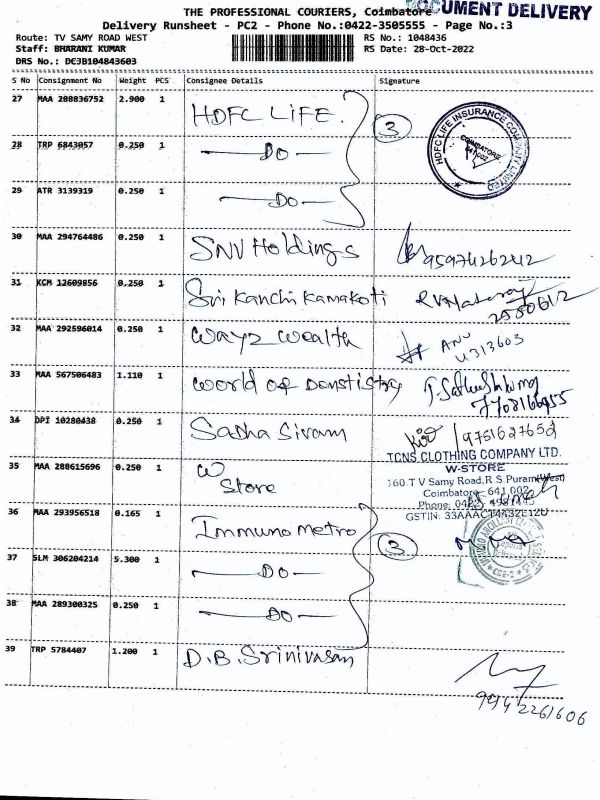 THE PROFESSIONAL COURIERS, Coimbatore
DOCUMENT DELIVERY
Delivery Runsheet - PC2 - Phone No.:0422-3505555 - Page No.:3
Route: TV SAMY ROAD WEST
RS No.: 1048436
Staff: BHARANI KUMAR
RS Date: 28-Oct-2022
DRS No.: DCJB104843603
S No Consignment No Weight PCS Consignee Details Signature
27 MAA 288836752 2.900 1 HDFC LIFE.
3
HDFC LIFE INSURANCE COMPANY LIMITED
COIMBATORE
641 002
28 TRP 6843057 0.250 1 — DO —
29 ATR 3139319 0.250 1 — DO —
30 MAA 294764486 0.250 1 SNV Holdings
31 KCM 12609856 0.250 1 Sri Kanchi Kamakoti
2550612
32 MAA 292596014 0.250 1 Wayz Wealth
ANU
4313603
33 MAA 567506483 1.110 1 World of Denstistry
34 DPI 10280438 0.250 1 Sadha Sivam
9751627652
TCNS CLOTHING COMPANY LTD.
35 MAA 288615696 0.250 1 W
Store
W-STORE
160.T V Samy Road,R S Puram(West)
Coimbatore- 641 002
Phone: 0422
GSTIN:
36 MAA 293956518 0.165 1 Immuno Metro
3
37 SLM 306204214 5.300 1 — DO —
38 MAA 289300325 0.250 1 — DO —
39 TRP 5784407 1.200 1 D.B. Srinivasan
9942261606